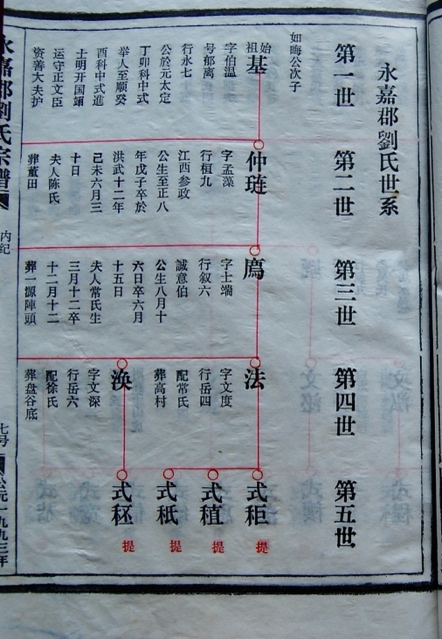 永嘉郡劉氏世系
第一世
第二世
第三世
第四世
第五世
如晦公次子
始祖
基
字伯温
号郁离
行永七
公於元太定
丁卯科中式
举人至顺癸
酉科中式進
士明开国翊
运守正文臣
资善大夫护
仲璉
字孟藻
行桓九
江西参政
公生至正八
年戊子卒於
洪武十二年
己未六月三
十日
夫人陈氏
葬董田
廌
字士端
行叙六
誠意伯
公生八月十
六日卒六月
十五日
夫人常氏生
三月十二卒
十二月十二
葬一源陣頭
法
字文度
行岳四
配常氏
葬高村
涣
字文深
行岳六
配徐氏
葬盘谷底
式秬
提
式稙
提
式秖
提
式秠
提
永嘉郡劉氏宗譜
内纪
七号
公元一九九三年